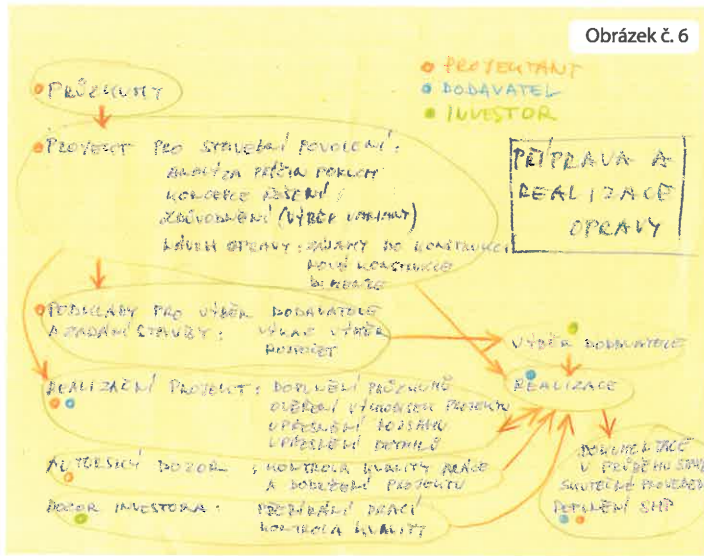 Obrázek č. 6
PROJEKTANT
DODAVATEL
INVESTOR
PRŮZKUMY
PROJEKT PRO STAVEBNÍ POVOLENÍ:
ANALÝZA PŘÍČIN PORUCH
KONCEPCE ŘEŠENÍ
ZDŮVODNĚNÍ (VÝBĚR VARIANTY)
NÁVRH OPRAVY: ZÁSAHY DO KONSTRUKCÍ
NOVÉ KONSTRUKCE
PŘÍPRAVA A
REALIZACE
OPRAVY
PODKLADY PRO VÝBĚR DODAVATELE
A ZADÁNÍ STAVBY: VÝKAZ VÝMĚR
ROZPOČET
VÝBĚR DODAVATELE
REALIZAČNÍ PROJEKT: DOPLNĚNÍ PRŮZKUMŮ
OVĚŘENÍ VÝCHODISEK PROJEKTU
UPŘESNĚNÍ ROZSAHU
UPŘESNĚNÍ DETAILŮ
REALIZACE
AUTORSKÝ DOZOR: KONTROLA KVALITY PRÁCE
A DODRŽENÍ PROJEKTU
DOZOR INVESTORA: PŘEBÍRÁNÍ PRACÍ
KONTROLA KVALITY
DOKUMENTACE
V PRŮBĚHU
SKUTEČNÉ PROVEDENÍ
DOPLNĚNÍ SHP